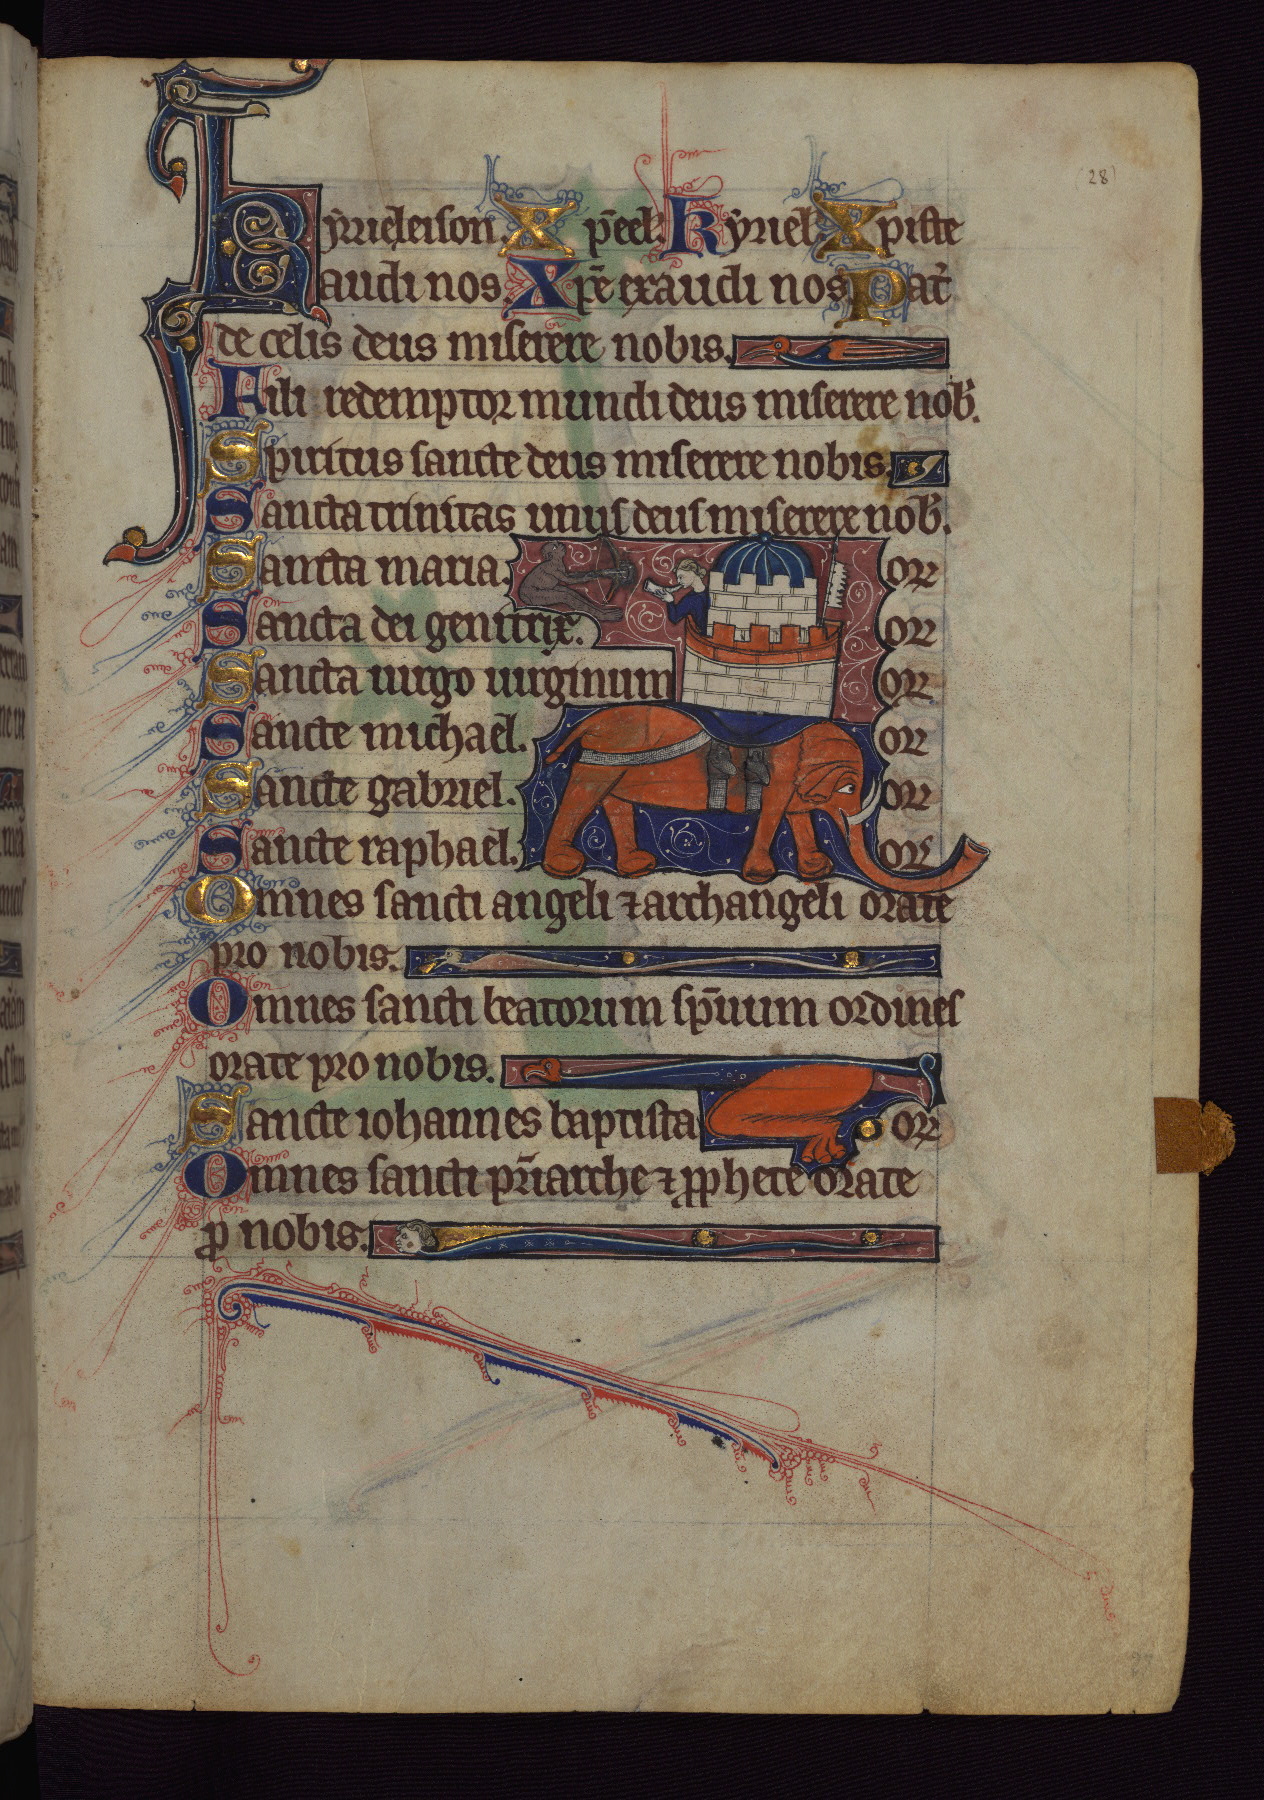 (28)
Kẏrieleison. X p̄eel'. Kẏriel'. Xpiste
audi nos. Xp̄e exaudi nos. Pat͛
de celis deus miserere nobis.
Fili redemptor mundi deus miserere nob'.
Spiritus sancte deus miserere nobis.
Sancta trinitas unus deus miserere nob'.
Sancta maria. or
Sancta dei genitrix. or
Sancta uirgo uirginum or
Sancte michael. or
Sancte gabriel. or
Sancte raphael. or
Omnes sancti angeli ⁊ archangeli orate
pro nobis.
Omnes sancti beatorum sp̄uum ordines
orate pro nobis.
Sancte iohannes baptista or
Omnes sancti pr̄iarche ⁊ ꝓphete orate
ꝓ nobis.